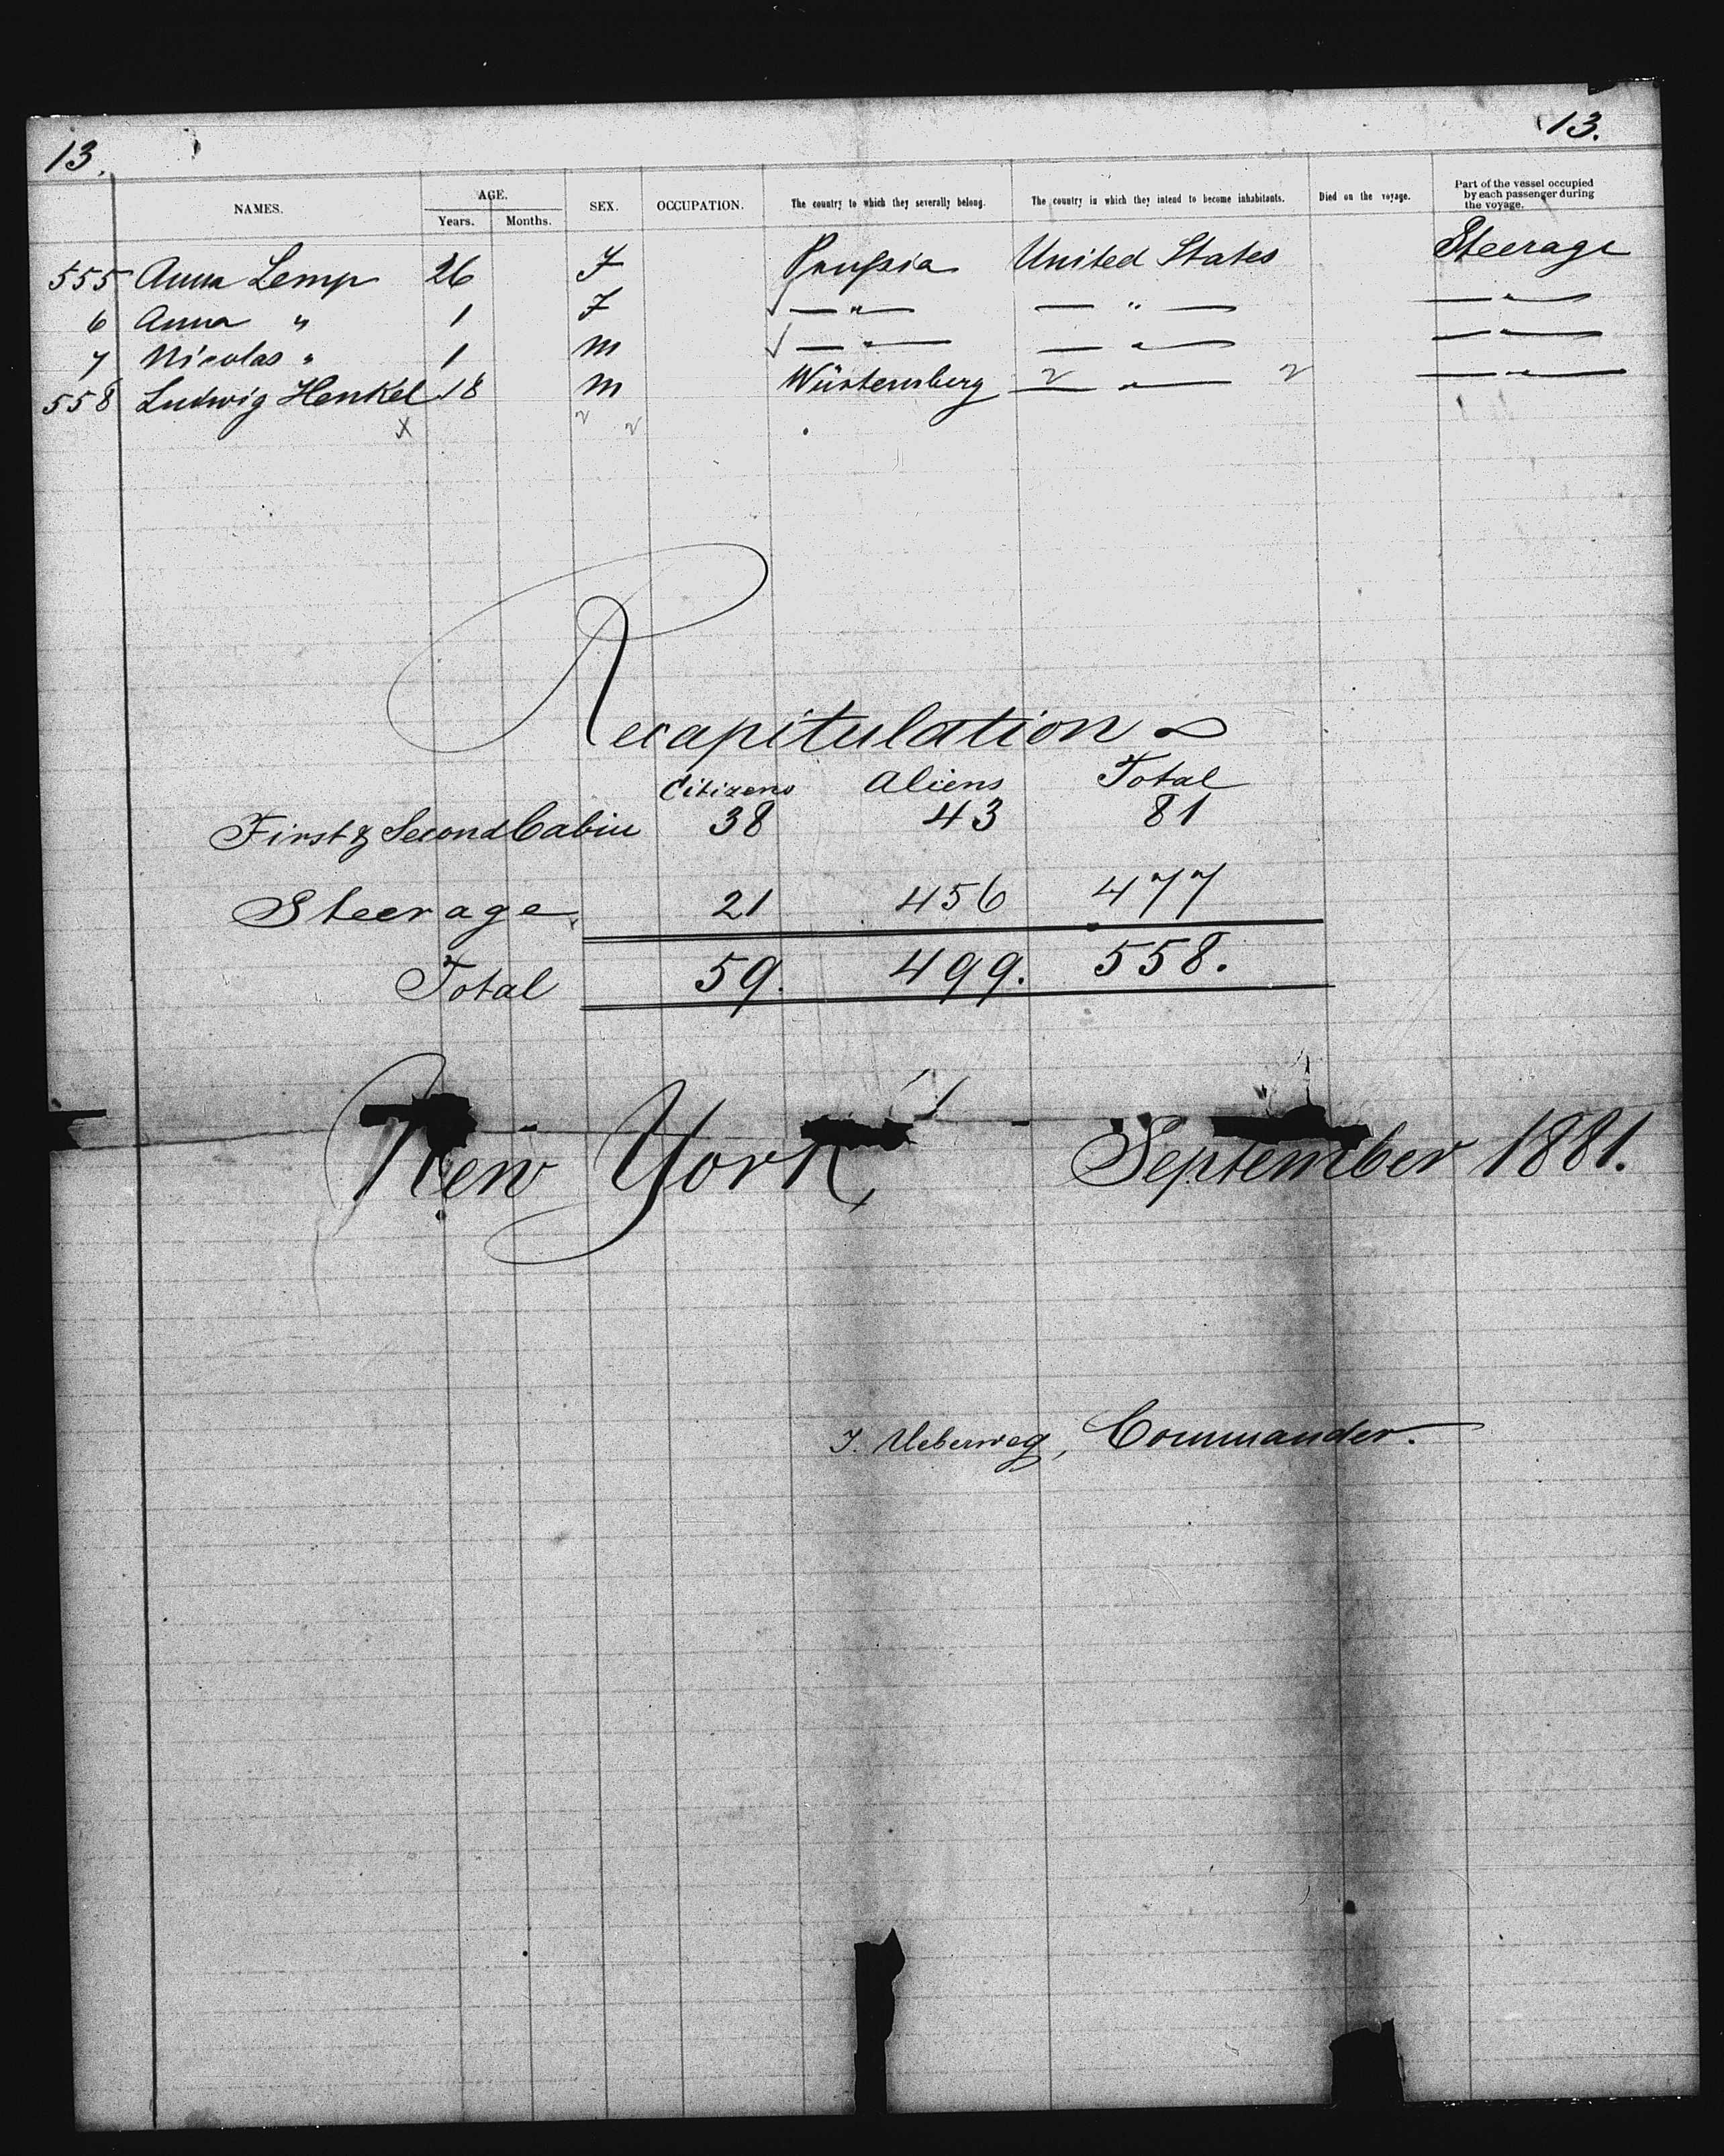 13. 13.
NAMES. AGE. Years. Months. SEX. OCCUPATION. The country to which they severally belong. The country in which they intend to become inhabitants. Died on the voyage. Part of the vessel occupied by each passenger during the voyage.
555 Anna Lemp 26 F Prussia United States Steerage
6 Anna " 1 F — " — — " — — " —
7 Nicolas " 1 M — " — — " — — " —
558 Ludwig Henkel 18 M Würtemberg — " — — " —
Recapitulation
Citizens Aliens Total
First & Second Cabin 38 43 81
Steerage 21 456 477
Total 59. 499. 558.
New York, September 1881.
Ueberweg, Commander.